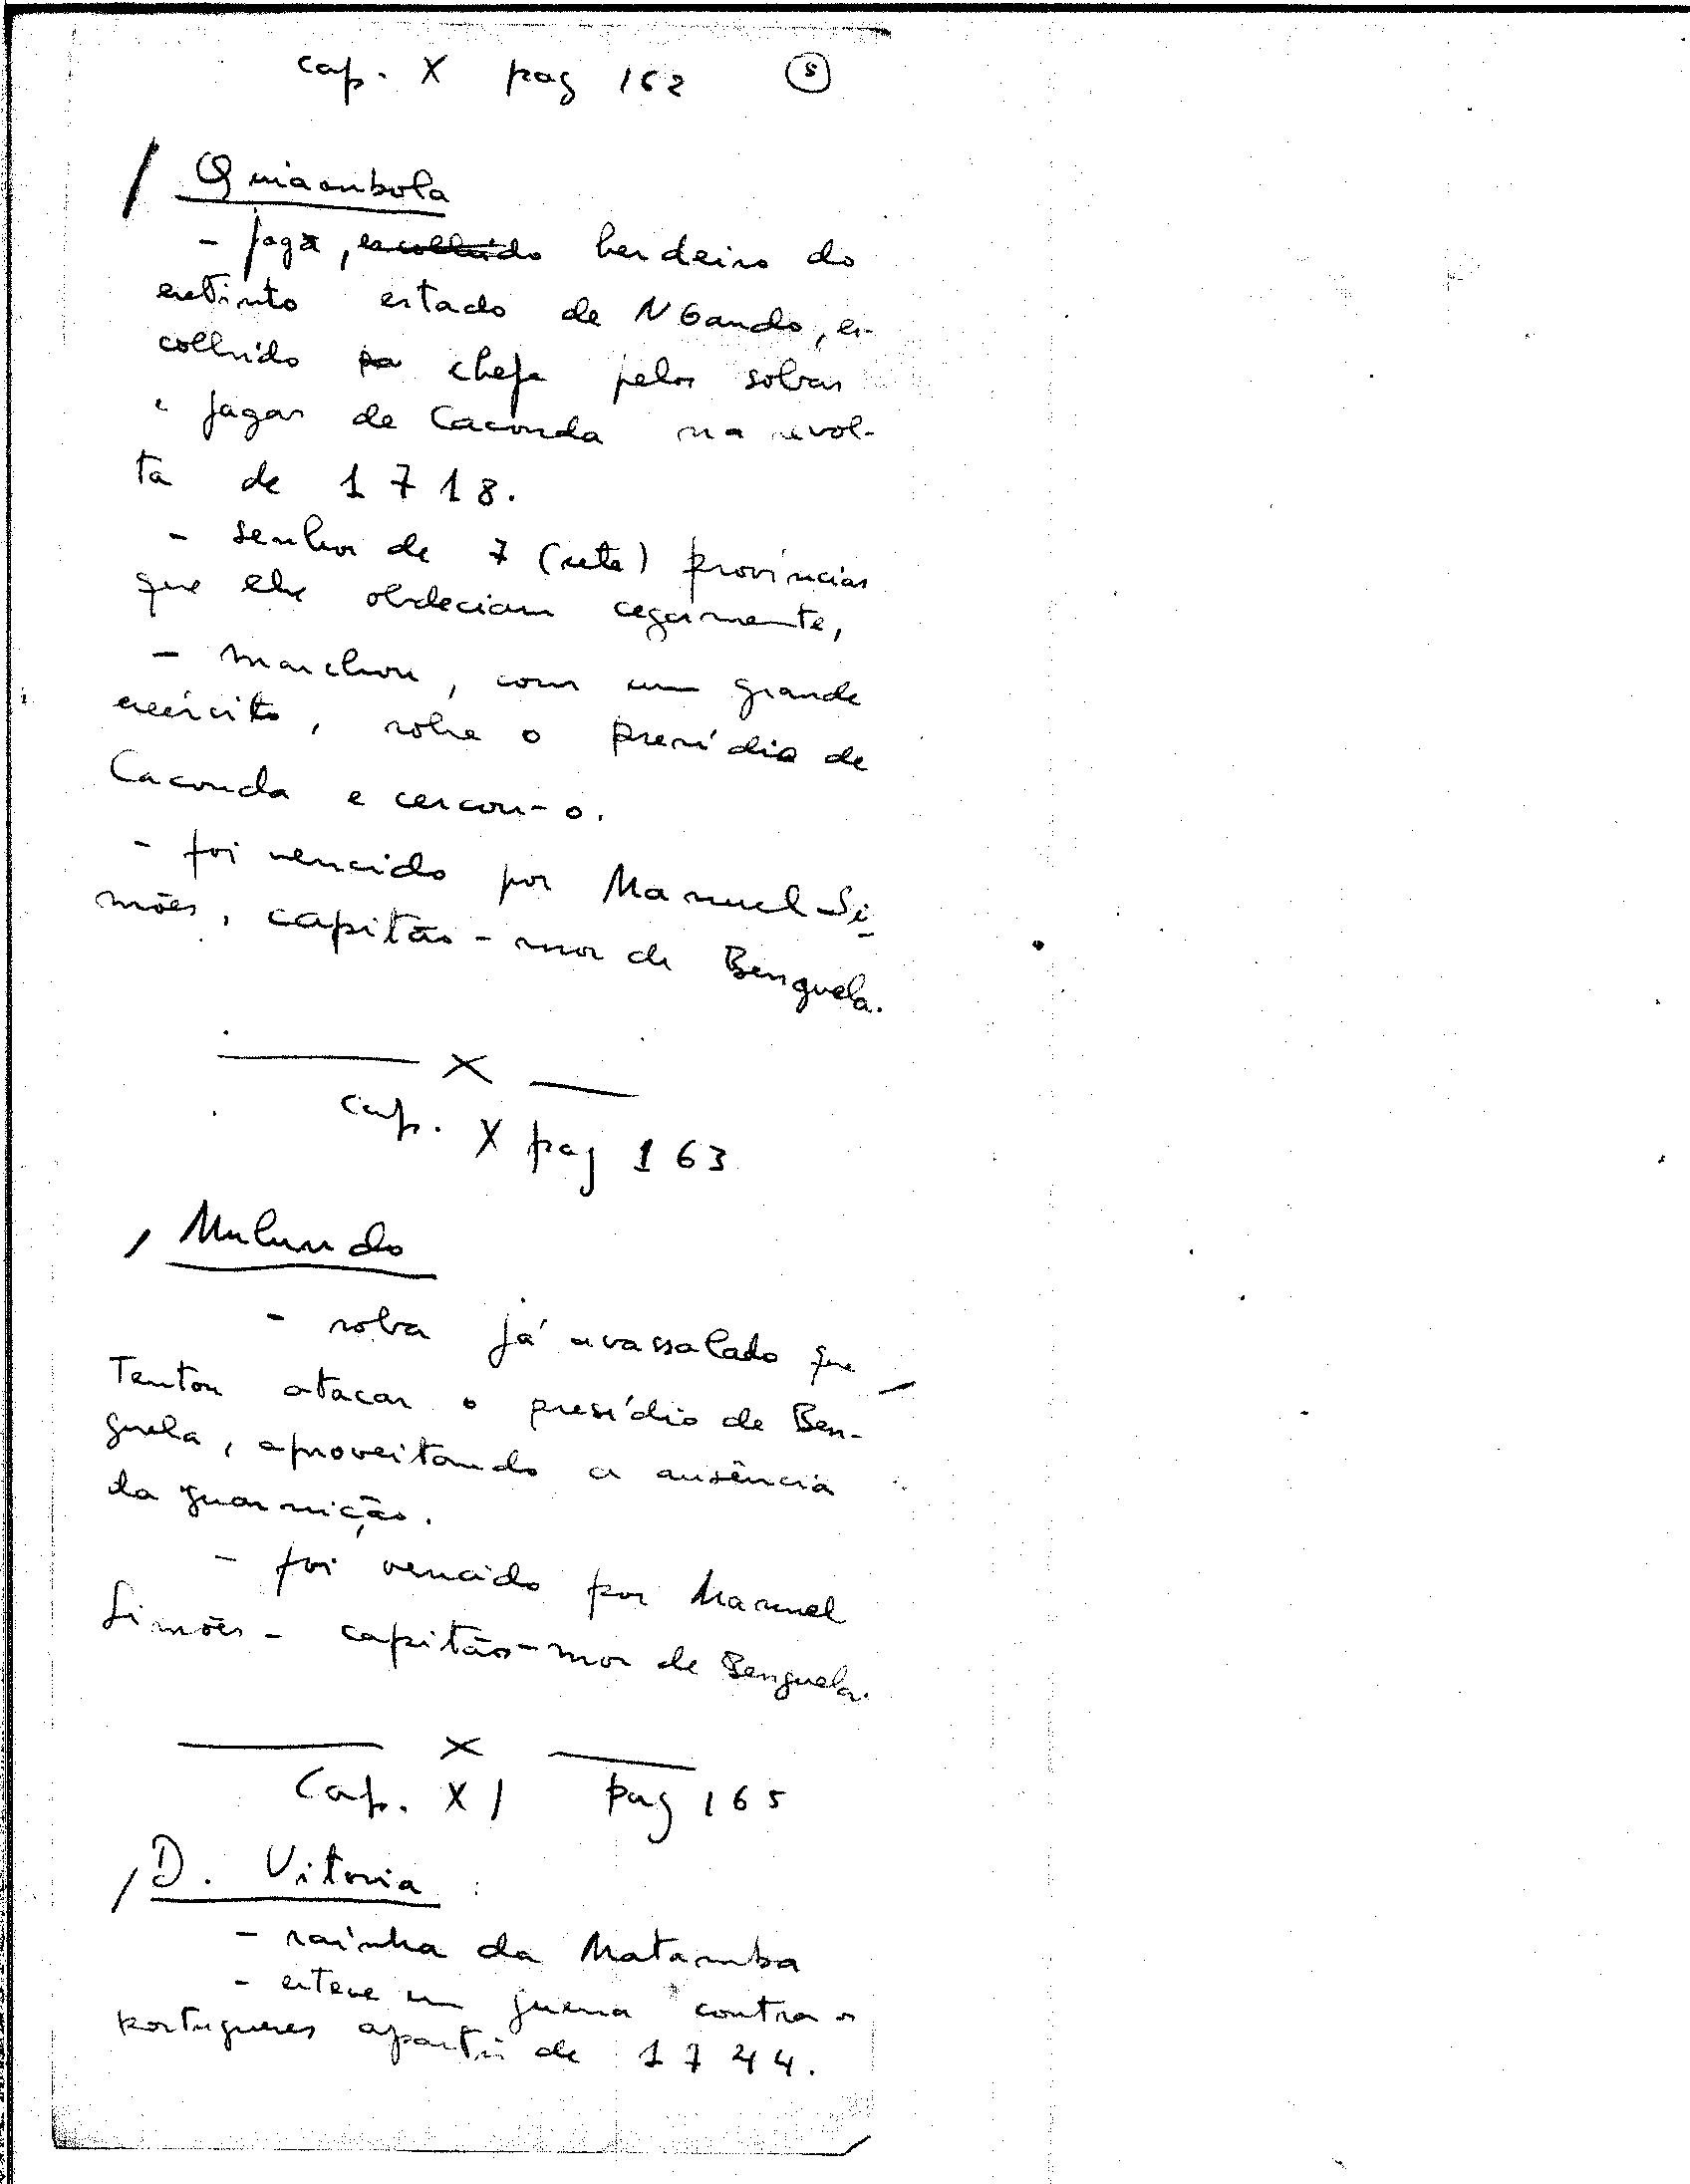 cap. X pag 162 (5)
Quiambola
- jaga, escolhido herdeiro do
extinto estado de NGando, es-
colhido pa chefe pelos sobas
e jagas de Caconda na revol-
ta de 1718.
- senhor de 7 (sete) províncias
que lhe obdeciam cegamente,
- marchou, com um grande
exército, sobre o presídio de
Caconda e cercou-o.
- foi vencido por Manuel Si-
mões, capitão-mor de Benguela.
X
cap. X pag 163
Mulundo
- soba já avassalado que
tentou atacar o presídio de Ben-
guela, aproveitando a ausência
da guarnição.
- foi vencido por Manuel
Simões - capitão-mor de Benguela.
X
Cap. XI pag 165
D. Vitoria
- rainha da Matamba
- esteve em guerra contra os
portugueses apartir de 1744.